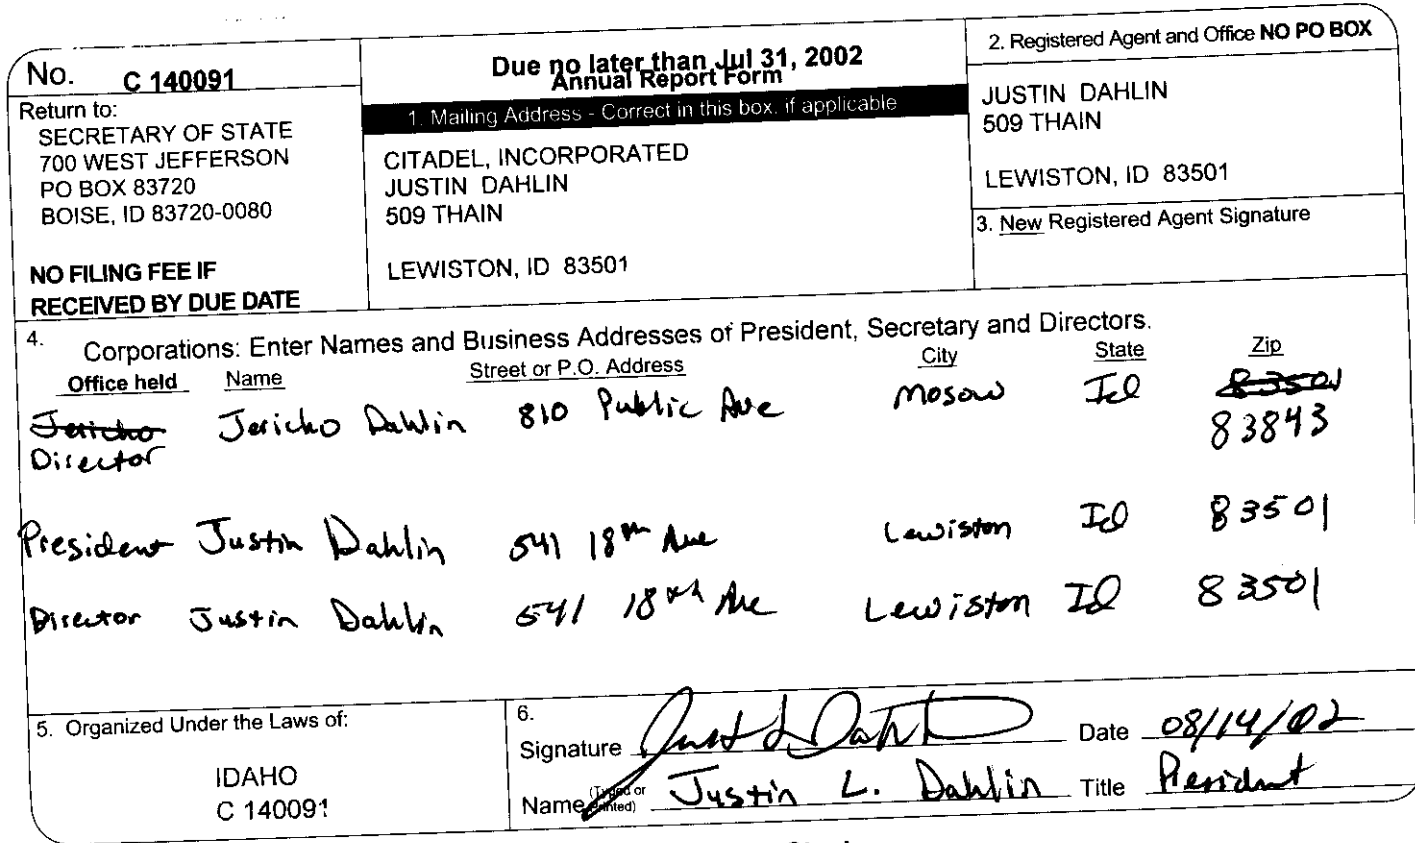 No. C 140091
Return to:
SECRETARY OF STATE
700 WEST JEFFERSON
PO BOX 83720
BOISE, ID 83720-0080
NO FILING FEE IF
RECEIVED BY DUE DATE
Due no later than Jul 31, 2002
Annual Report Form
1. Mailing Address - Correct in this box, if applicable
CITADEL, INCORPORATED
JUSTIN DAHLIN
509 THAIN
LEWISTON, ID 83501
2. Registered Agent and Office NO PO BOX
JUSTIN DAHLIN
509 THAIN
LEWISTON, ID 83501
3. New Registered Agent Signature
4. Corporations: Enter Names and Business Addresses of President, Secretary and Directors.
Office held Name Street or P.O. Address City State Zip
Jericho Jericho Dahlin 810 Public Ave Mosow Id 83501
Director 83843
President Justin Dahlin 541 18th Ave Lewiston Id 83501
Director Justin Dahlin 541 18th Ave Lewiston Id 83501
5. Organized Under the Laws of:
IDAHO
C 140091
6.
Signature Date 08/14/02
Name (Typed or Printed) Justin L. Dahlin Title President